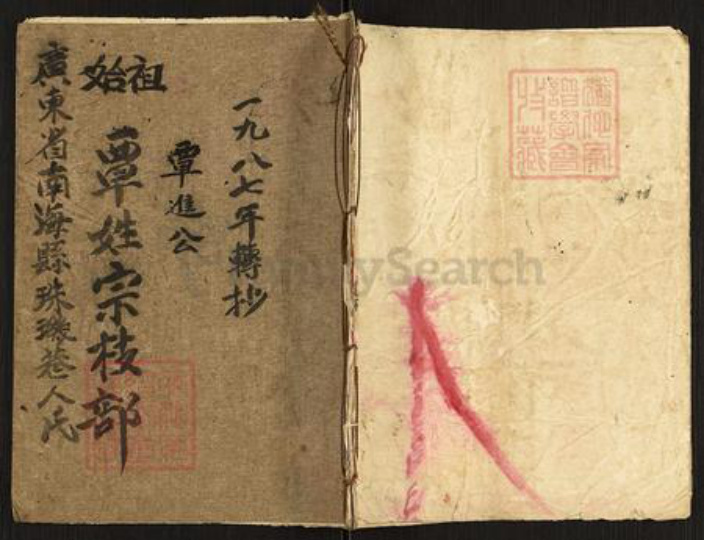 一九八七年轉抄
覃進公
始祖
覃姓宗枝部
廣東省南海縣珠璣巷人氏